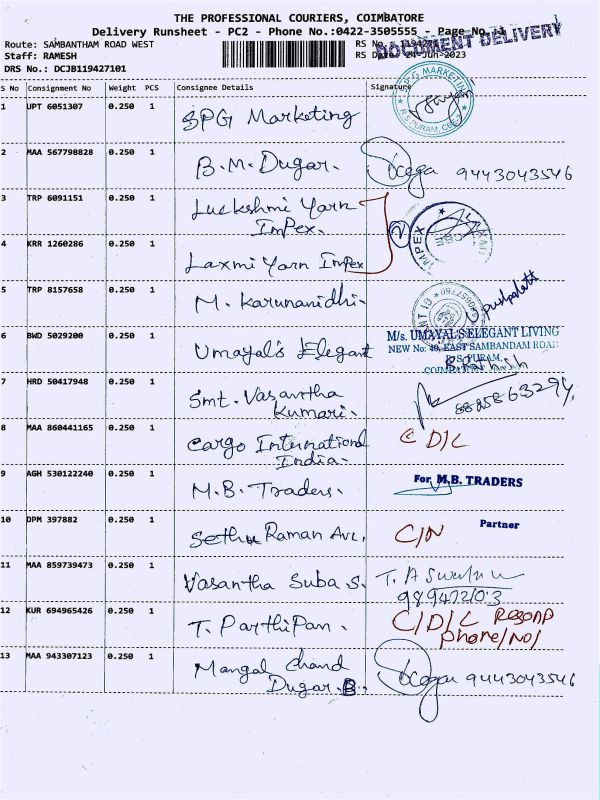 THE PROFESSIONAL COURIERS, COIMBATORE
Delivery Runsheet - PC2 - Phone No.:0422-3505555 - Page No.:1
DOCUMENT DELIVERY
Route: SAMBANTHAM ROAD WEST
RS No.
Staff: RAMESH
RS Date 24-Jun-2023
DRS No.: DCJB119427101
S No Consignment No Weight PCS Consignee Details Signature
1 UPT 6051307 0.250 1 SPG Marketing
SPG MARKETING
R S PURAM, CBE-2
2 MAA 567798828 0.250 1 B.M. Dugar. 9443043546
3 TRP 6091151 0.250 1 Luckshmi Yarn
Impex.
2
IMPEX
CBE
4 KRR 1260286 0.250 1 Laxmi Yarn Impex
5 TRP 8157658 0.250 1 M. Karunanidhi-
6 BWD 5029200 0.250 1 Umayal's Elegant
M/s. UMAYAL'S ELEGANT LIVING
NEW No: 40, EAST SAMBANDAM ROAD
R.S PURAM,
7 HRD 50417948 0.250 1 Smt. Vasantha
Kumari.
8 MAA 860441165 0.250 1 Cargo International
India- C D/L
9 AGH 530122240 0.250 1 M.B. Traders.
For M.B. TRADERS
Partner
10 DPM 397882 0.250 1 Sethu Raman Avl. C/N
11 MAA 859739473 0.250 1 Vasantha Suba S.
12 KUR 694965426 0.250 1 T. Parthipan. C/D/L
Phone/No/
13 MAA 943307123 0.250 1 Mangal Chand
Dugar.B. 9443043546